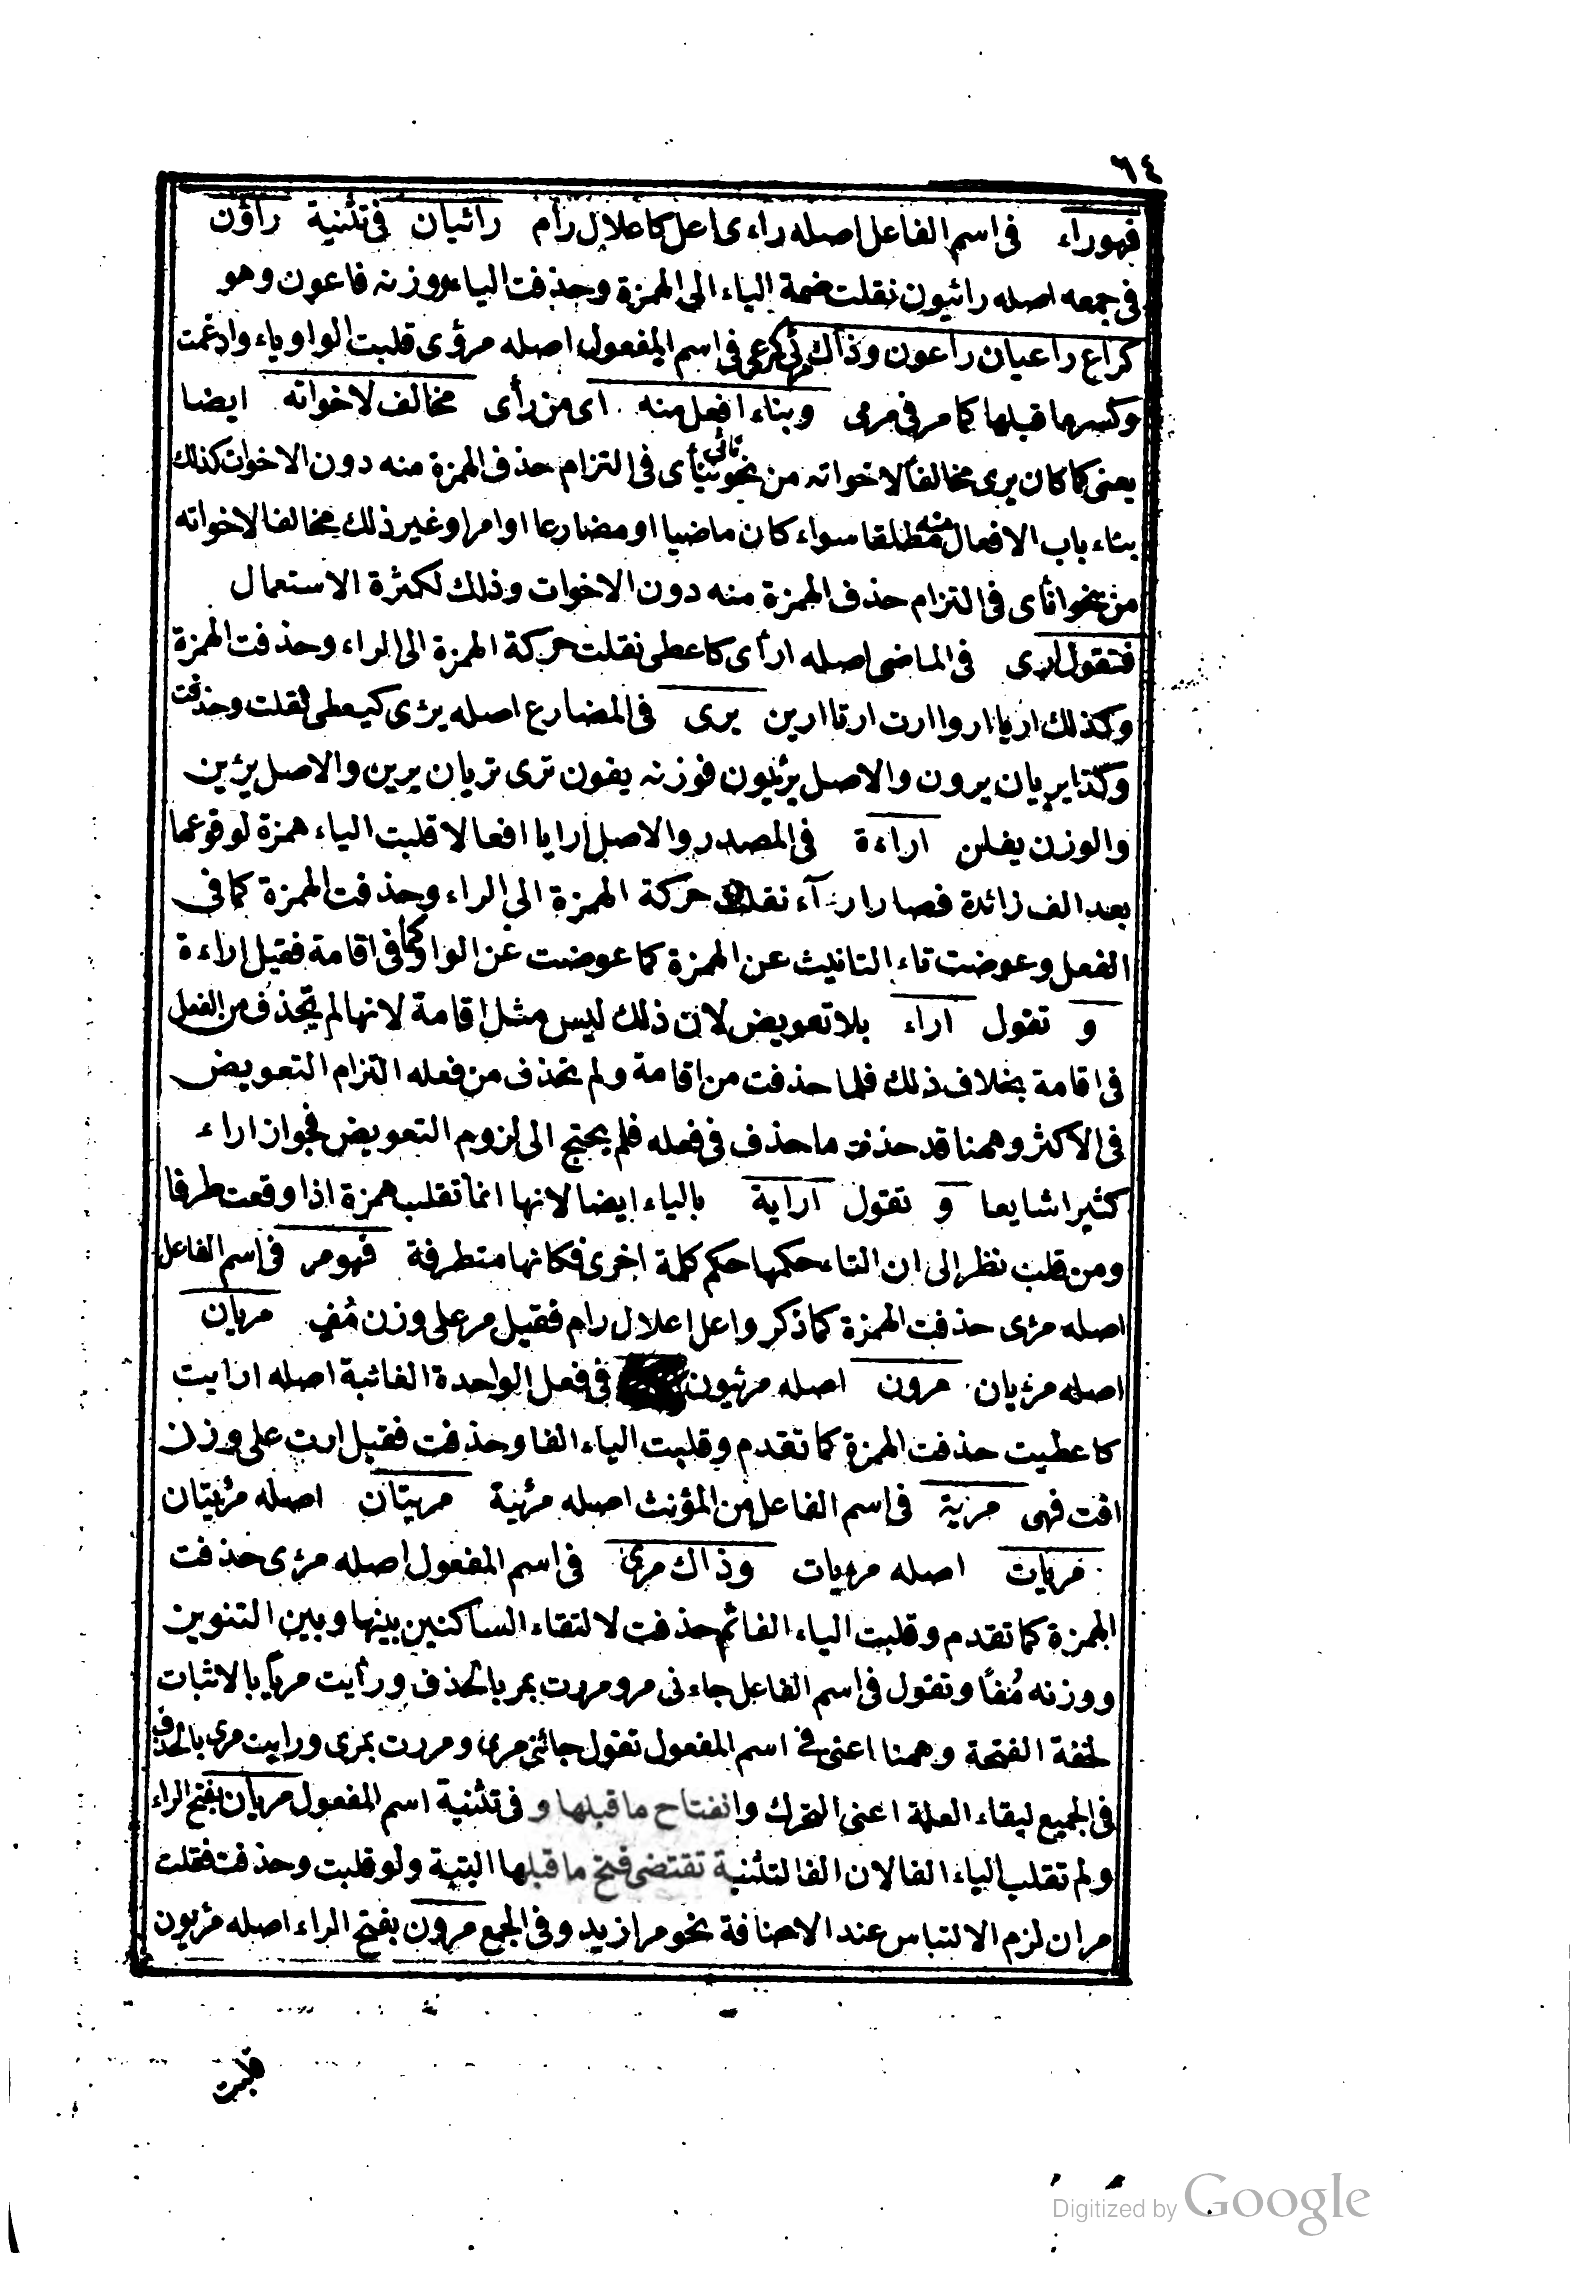 ٦٤
فهوراء فى اسم الفاعل اصله راءى اعل كاعلال رام رائيان فى تثنية راؤن
فى جمعه اصله رائيون نقلت ضمة الياء الى الهمزة وحذفت الياء ووزنه فاعون وهو
كراع راعيان راعون وذاك مرئى كمرعى فى اسم المفعول اصله مرؤى قلبت الواو ياء وادغمت
وكسر ما قبلها كما مر فى مرمى وبناء افعل منه اى من رأى مخالف لاخواته ايضا
يعنى كما كان يرى مخالفا لاخواته من نحو ينأى فى التزام حذف الهمزة منه دون الاخوات كذلك
بناء باب الافعال منه مطلقا سواء كان ماضيا او مضارعا او امرا وغير ذلك مخالفا لاخواته
من نحو انأى فى التزام حذف الهمزة منه دون الاخوات وذلك لكثرة الاستعمال
فتقول ارى فى الماضى اصله ارأى كاعطى نقلت حركة الهمزة الى الراء وحذفت الهمزة
وكذلك اريا اروا ارت ارتا ارين يرى فى المضارع اصله يرئى كيعطى نقلت وحذفت
وكذا يريان يرون والاصل يرئيون فوزنه يفون ترى تريان يرين والاصل يرئين
والوزن يفلن اراءة فى المصدر والاصل ارايا افعالا قلبت الياء همزة لوقوعها
بعد الف زائدة فصار ارآء نقلت حركة الهمزة الى الراء وحذفت الهمزة كما فى
الفعل وعوضت تاء التانيث عن الهمزة كما عوضت عن الواو كما فى اقامة فقيل اراءة
و تقول اراء بلا تعويض لان ذلك ليس مثل اقامة لانها لم تحذف من الفعل
فى اقامة بخلاف ذلك فلما حذفت من اقامة ولم تحذف من فعله التزام التعويض
فى الاكثر وههنا قد حذفت ما حذف فى فعله فلم يحتج الى لزوم التعويض فجواز اراء
كثيرا شايعا و تقول اراية بالياء ايضا لانها انما تقلب همزة اذا وقعت طرفا
ومن قلب نظر الى ان التاء حكمها حكم كلمة اخرى فكانها متطرفة فهو مر فى اسم الفاعل
اصله مرئى حذفت الهمزة كما ذكر واعل اعلال رام فقيل مر على وزن مُفٍ مريان
اصله مرئيان مرون اصله مرئيون فى فعل الواحدة الغائبة اصله ارايت
كاعطيت حذفت الهمزة كما تقدم وقلبت الياء الفا وحذفت فقيل ارت على وزن
افت فهى مرية فى اسم الفاعل من المؤنث اصله مرئية مريتان اصله مرئيتان
مريات اصله مرءيات وذاك مرى فى اسم المفعول اصله مرئى حذفت
الهمزة كما تقدم وقلبت الياء الفا ثم حذفت لالتقاء الساكنين بينها وبين التنوين
ووزنه مُفاً وتقول فى اسم الفاعل جاءنى مر ومررت بمر بالحذف ورأيت مرياً بالاثبات
لخفة الفتحة وههنا اعنى فى اسم المفعول تقول جائنى مرى ومررت بمرى ورايت مرى بالحذف
فى الجميع لبقاء العلة اعنى التحرك وانفتاح ما قبلها و فى تثنية اسم المفعول مريان بفتح الراء
ولم تقلب الياء الفا لان الفا لتثنية تقتضى فتح ما قبلها البتية ولو قلبت وحذفت فقلت
مران لزم الالتباس عند الاضافة نحو مرا زيد وفى الجمع مرون بفتح الراء اصله مرئيون
قلبت
Digitized by Google